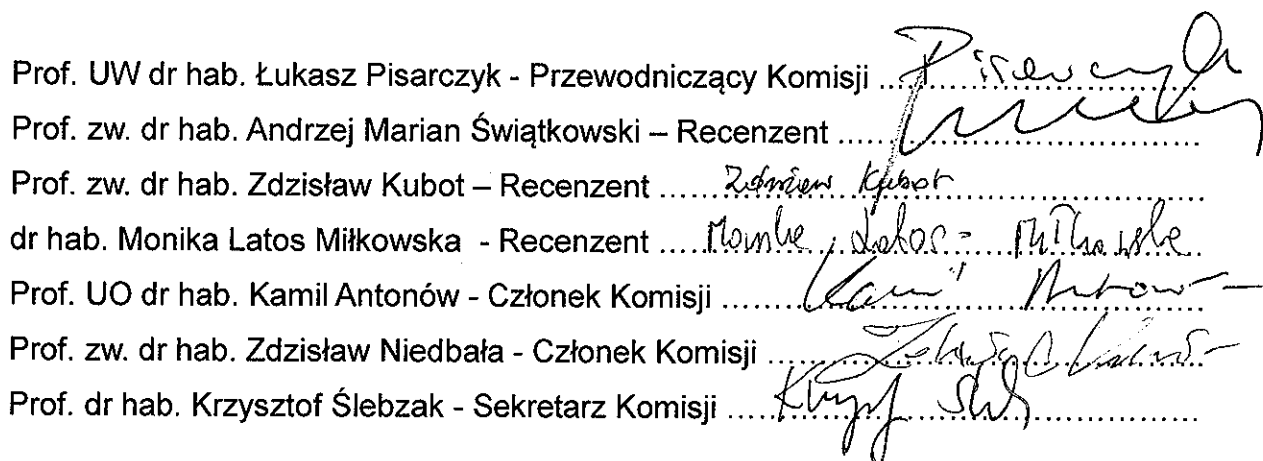 Prof. UW dr hab. Łukasz Pisarczyk - Przewodniczący Komisji ..... Pisarczyk
Prof. zw. dr hab. Andrzej Marian Świątkowski – Recenzent .....
Prof. zw. dr hab. Zdzisław Kubot – Recenzent ...... Zdzisław Kubot
dr hab. Monika Latos Miłkowska - Recenzent ..... Monika Latos-Miłkowska
Prof. UO dr hab. Kamil Antonów - Członek Komisji ...... Kamil Antonów
Prof. zw. dr hab. Zdzisław Niedbała - Członek Komisji .....
Prof. dr hab. Krzysztof Ślebzak - Sekretarz Komisji .....